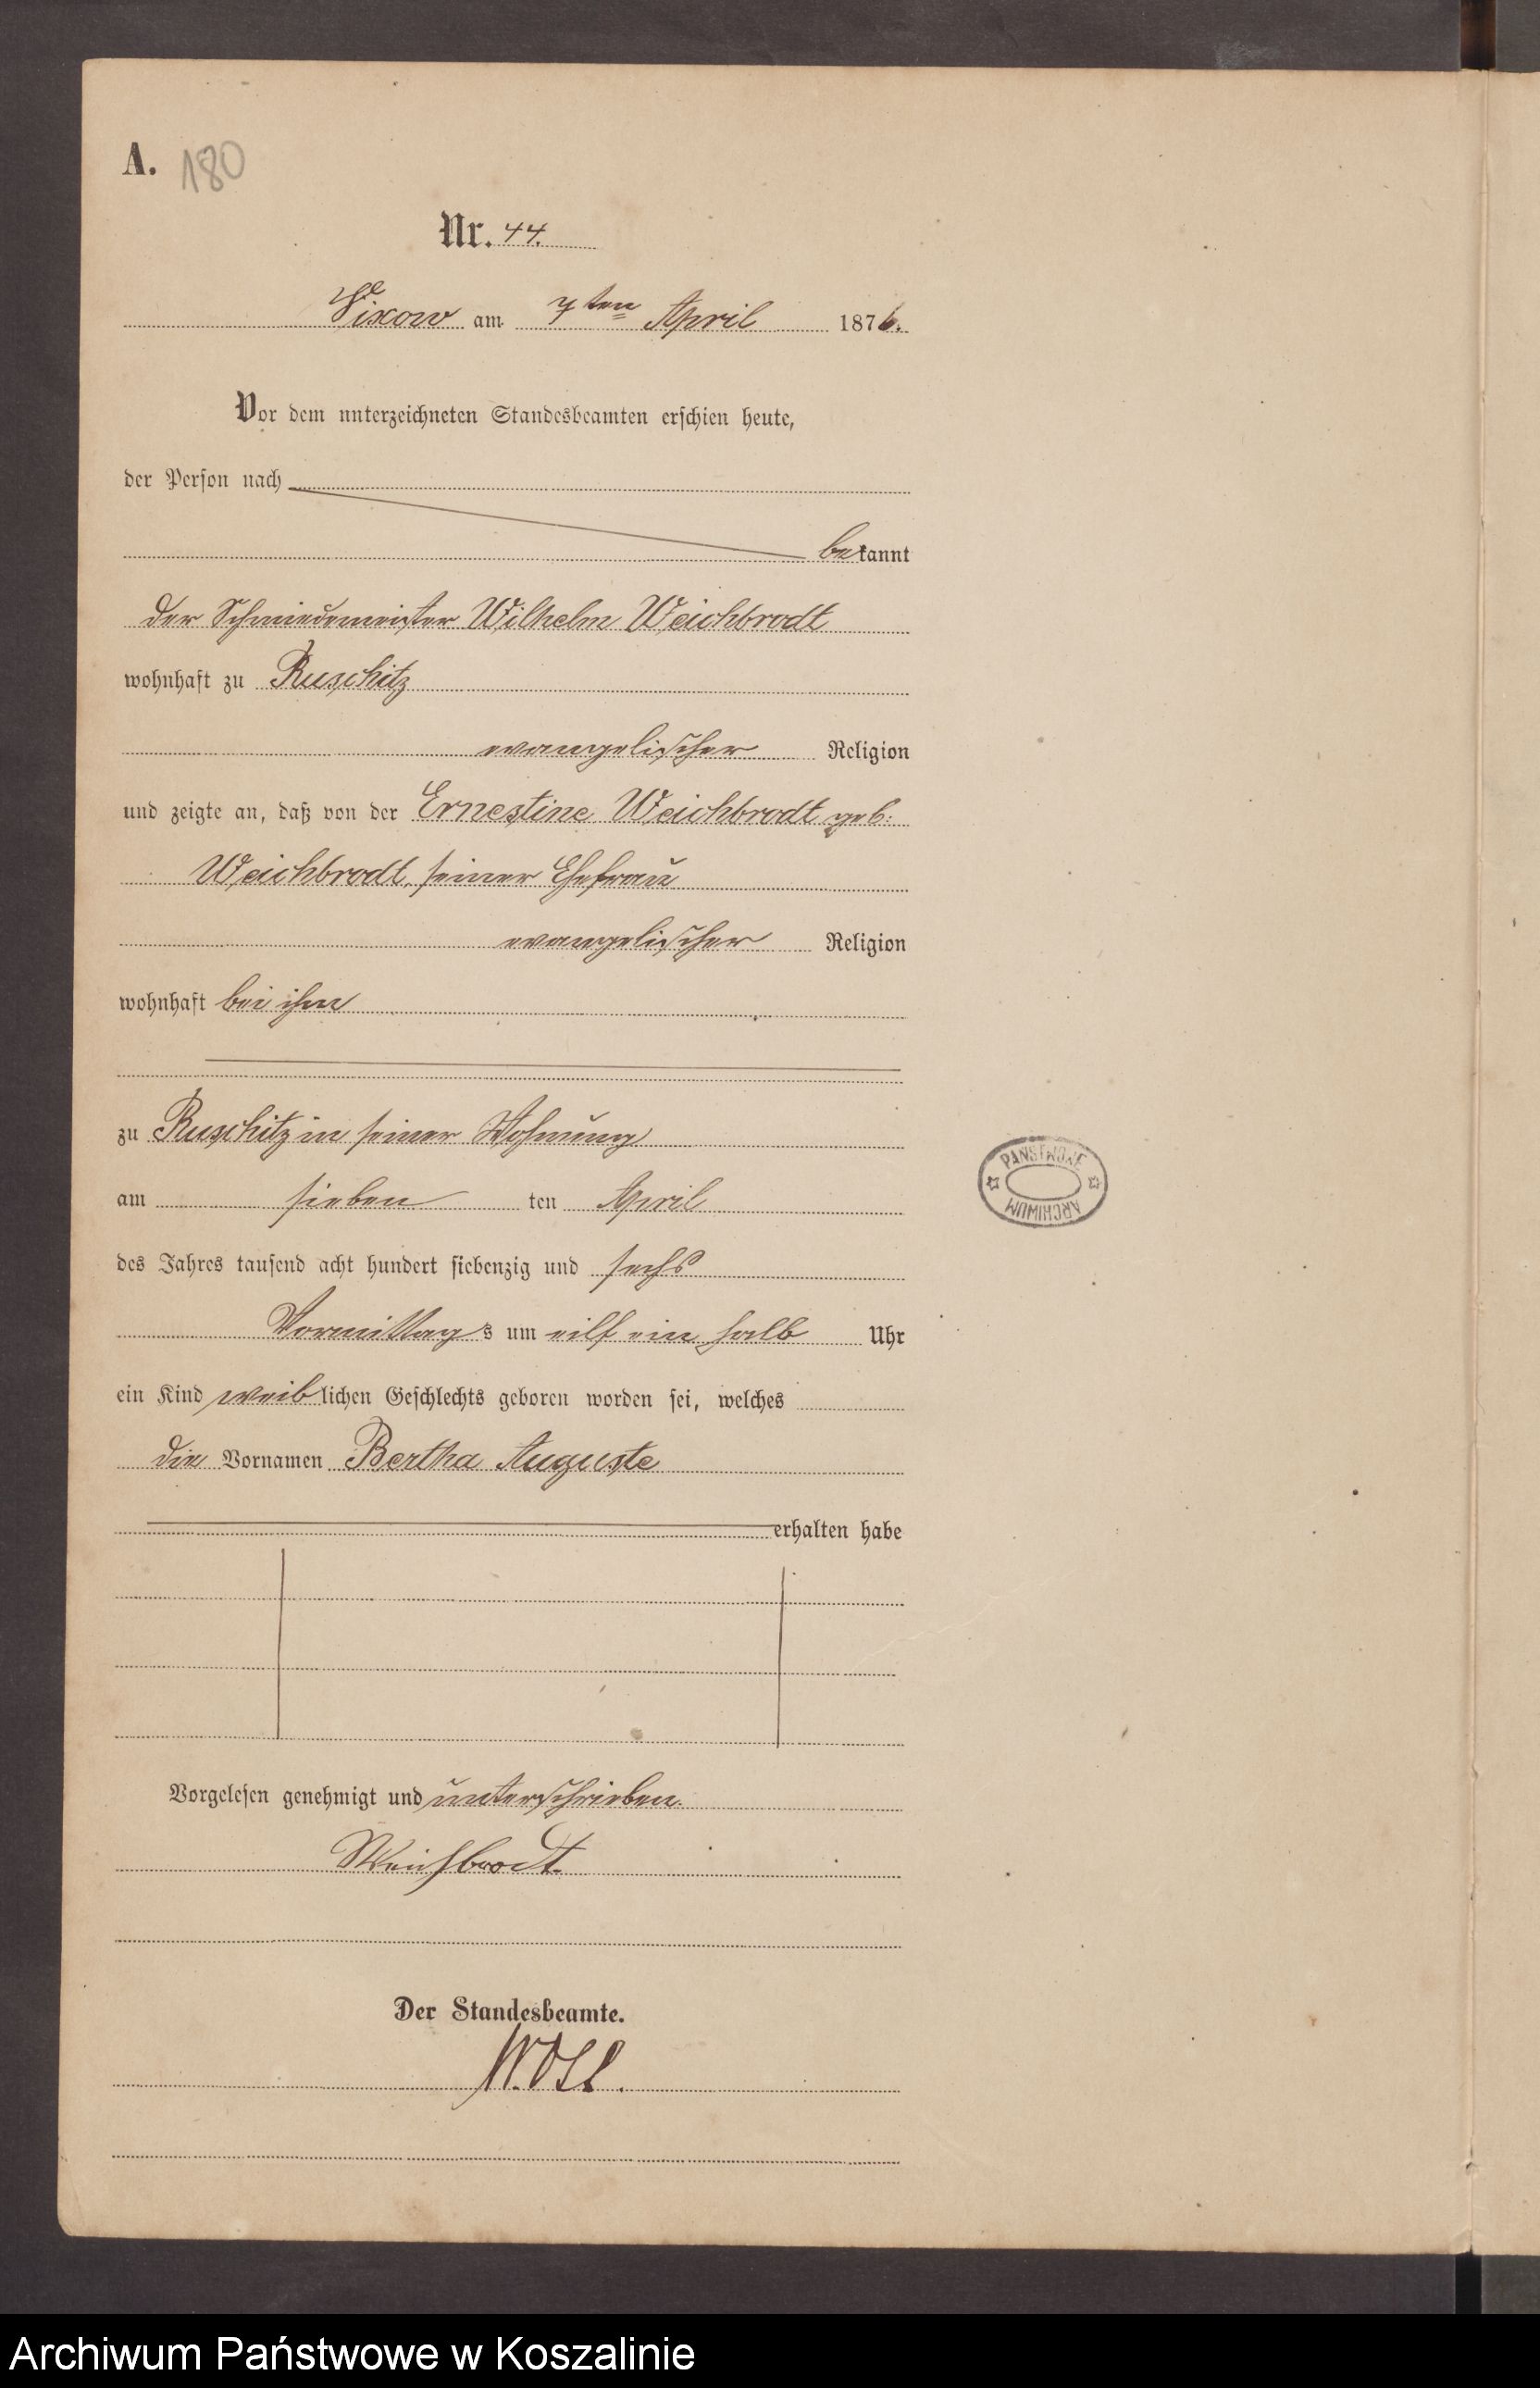 A. 180
Nr. 44.
Vixow am 7ten April 1876.
Vor dem unterzeichneten Standesbeamten erschien heute,
der Person nach
bekannt
der Schmiedemeister Wilhelm Weichbrodt
wohnhaft zu Ruschitz
evangelischer Religion
und zeigte an, daß von der Ernestine Weichbrodt geb:
Weichbrodt, seiner Ehefrau
evangelischer Religion
wohnhaft bei ihm
zu Ruschitz in seiner Wohnung
am sieben ten April
des Jahres tausend acht hundert siebenzig und sechs
Vormittags um eilf ein halb Uhr
ein Kind weiblichen Geschlechts geboren worden sei, welches
die Vornamen Bertha Auguste
erhalten habe
PAŃSTWOWE ARCHIWUM
Vorgelesen genehmigt und unterschrieben.
Weichbrodt.
Der Standesbeamte.
Archiwum Państwowe w Koszalinie